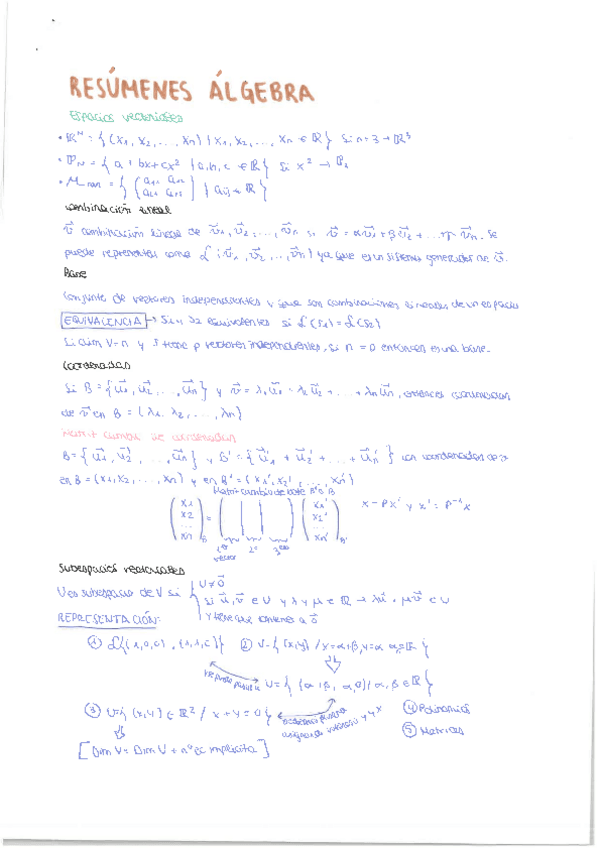 RESÚMENES ÁLGEBRA
Espacios vectoriales
• ℝᴺ = { (x₁, x₂, ..., xₙ) | x₁, x₂, ..., xₙ ∈ ℝ } Si n=3 → ℝ³
• ℙₙ = { a + bx + cx² | a, b, c ∈ ℝ } Si x² → ℙ₂
combinación lineal
v⃗ combinación lineal de v⃗₁, v⃗₂, ..., v⃗ₙ si v⃗ = αv⃗₁ + βv⃗₂ + ... v⃗ₙ. Se
puede representar como ℒ {v⃗₁, v⃗₂, ..., v⃗ₙ} ya que es un sistema generador de v⃗.
Base
Conjunto de vectores independientes y que son combinaciones lineales de un espacio
EQUIVALENCIA → S₁ y S₂ equivalentes si ℒ(S₁) = ℒ(S₂)
Si dim V = n y S tiene p vectores independientes, si n = p entonces es una base.
Coordenadas
Si B = {u⃗₁, u⃗₂, ..., u⃗ₙ} y v⃗ = λ₁u⃗₁ + λ₂u⃗₂ + ... + λₙu⃗ₙ, entonces coordenadas
de v⃗ en B = (λ₁, λ₂, ..., λₙ)
Matriz cambio de coordenadas
B = { u⃗₁, u⃗₂, ..., u⃗ₙ } y B' = { u⃗'₁ + u⃗₂' + ... + u⃗ₙ' } con coordenadas de
en B = (x₁, x₂, ..., xₙ) y en B' = (x₁', x₂', ..., xₙ')
Matriz cambio de base B' a B
(x₁ x₂ ... xₙ)B = ( | | ) (x₁' x₂' ... xₙ')B' x = Px' y x' = P⁻¹x
vector
Subespacios vectoriales
U es subespacio de V si { U ≠ 0⃗
Si u⃗, v⃗ ∈ U y λ y μ ∈ ℝ → λu⃗ + μv⃗ ∈ U
y tiene que contener a 0⃗
REPRESENTACIÓN:
① ② U = { (x,y) / x = α+β, y = α ∈ ℝ }
U = { (α+β, α, 0) / α, β ∈ ℝ }
③ U = { (x,y) ∈ ℝ² / x + y = 0 } ④ Polinomios
⑤ Matrices
[Dim V = Dim U + nº ec implícita]